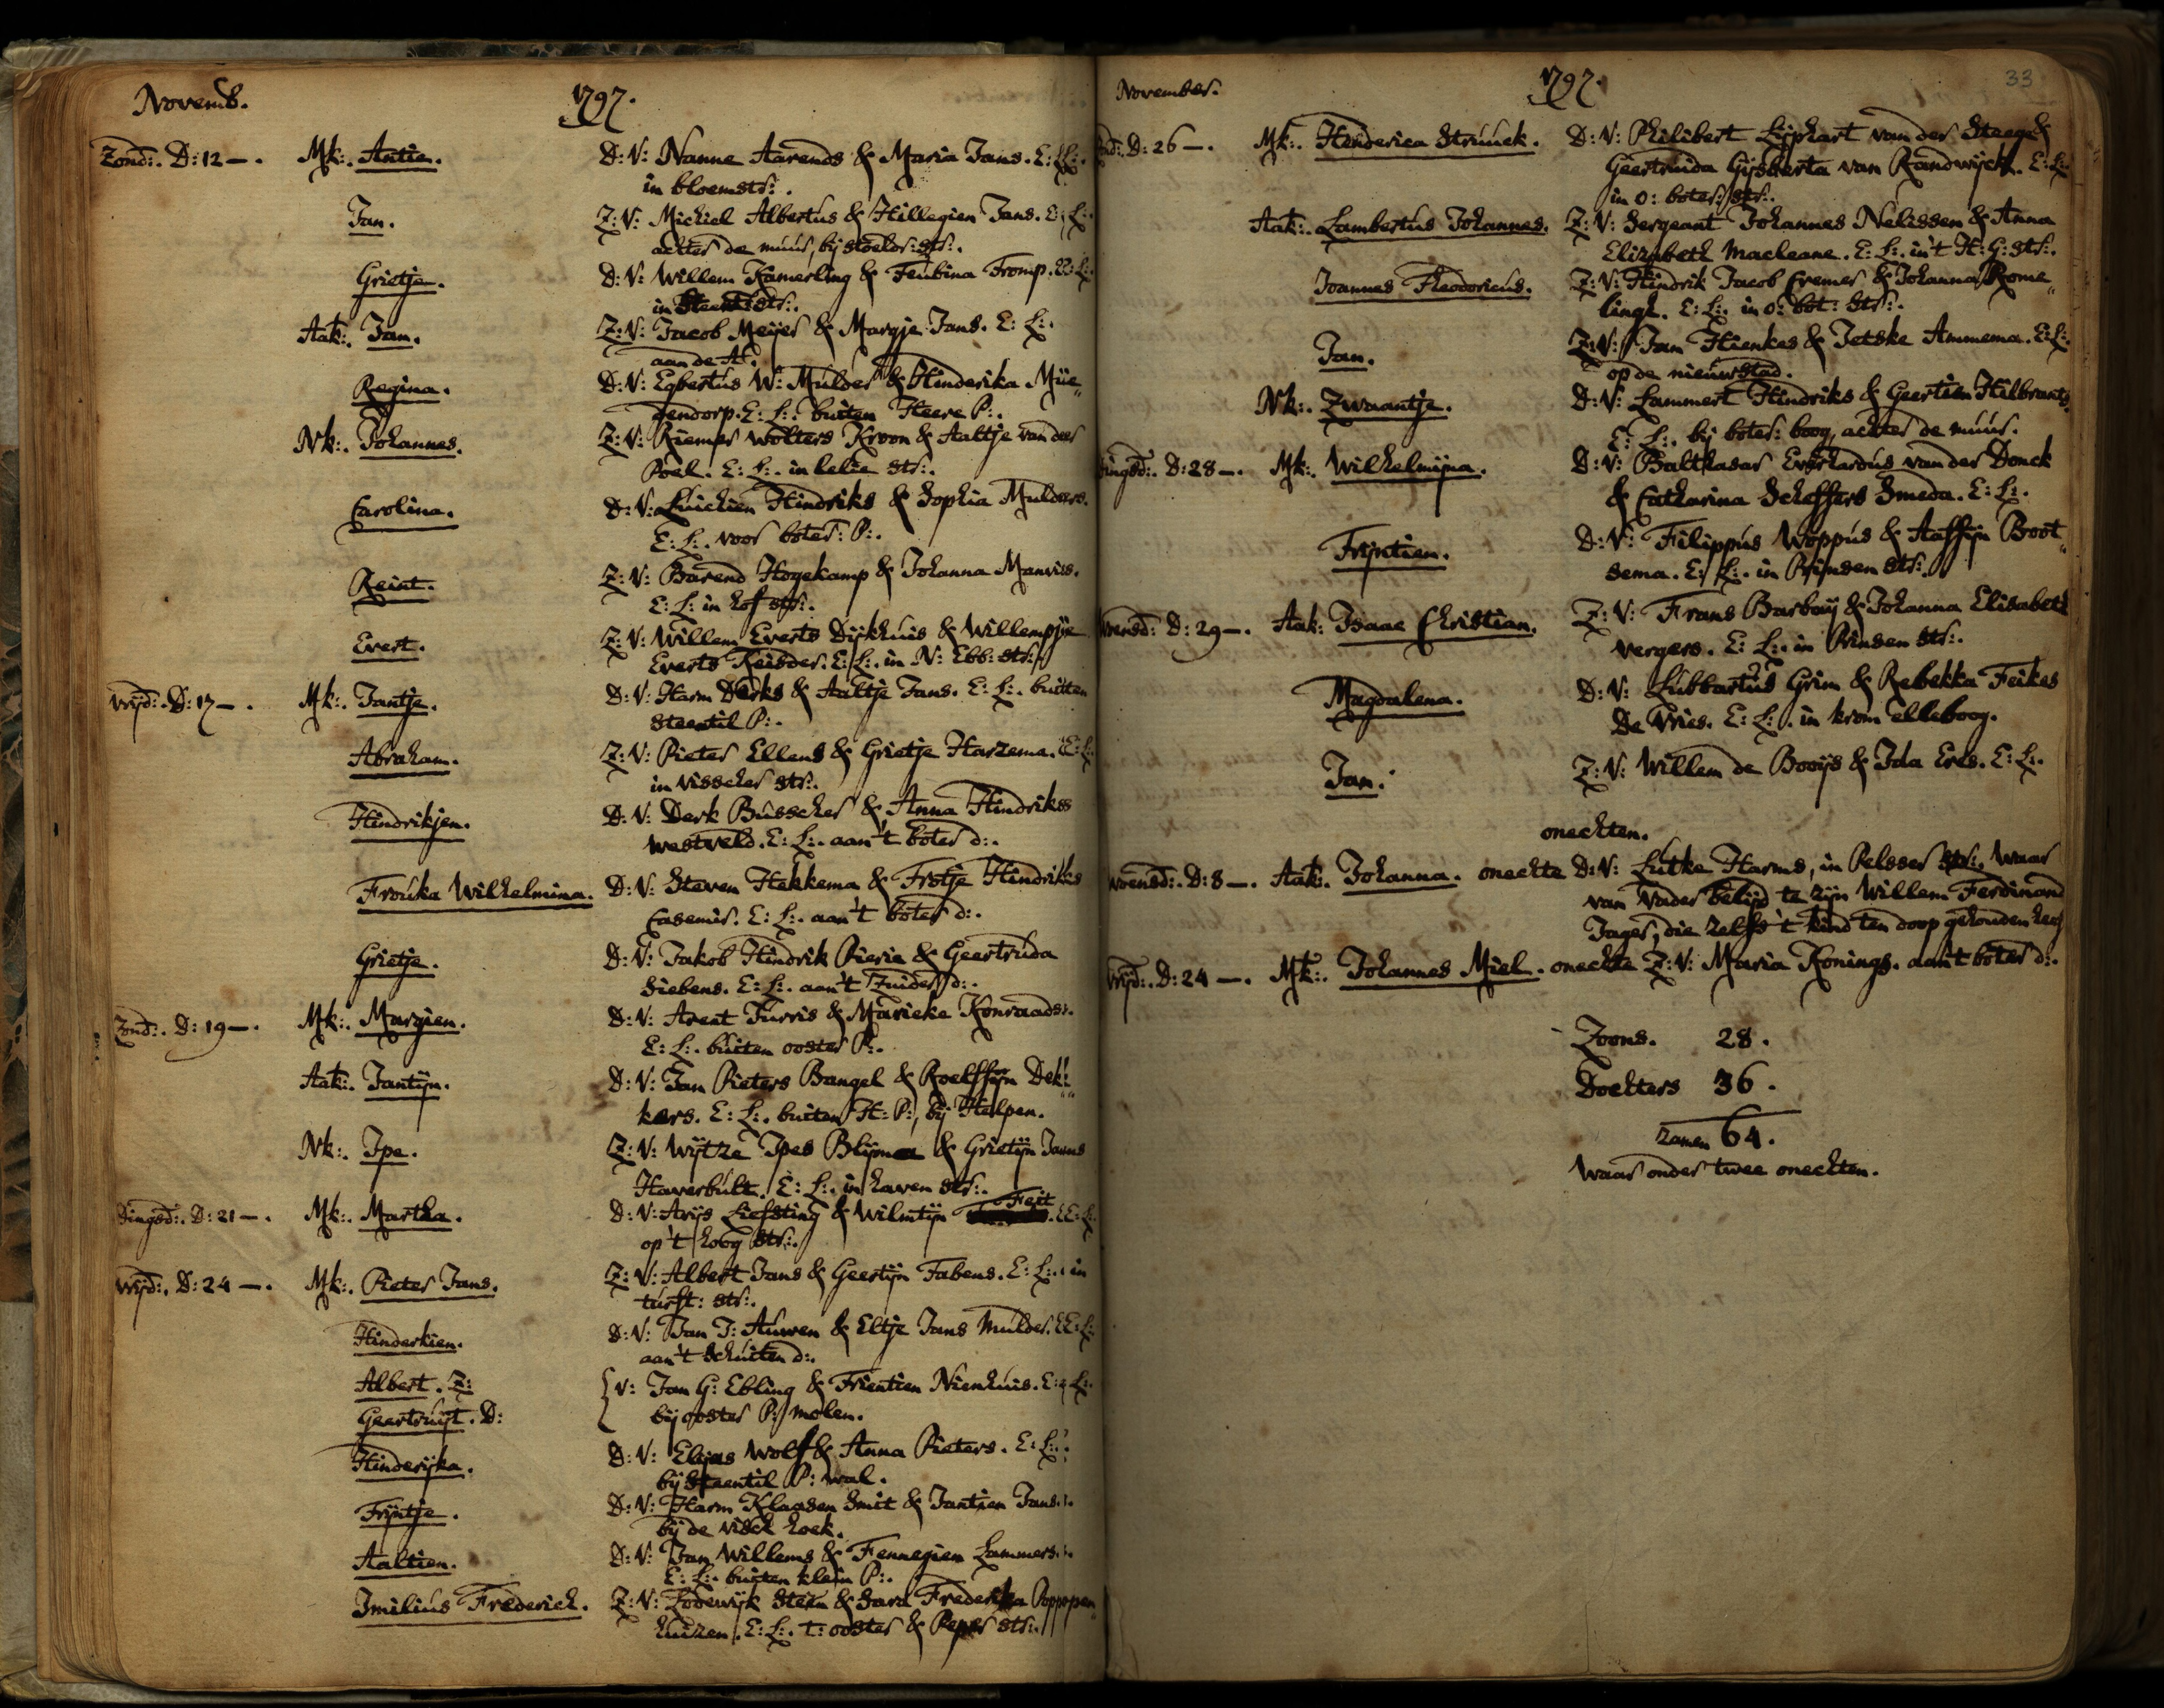 Novemb. 1797.
Zond:. D: 12 —. Mk:. Antie. D: V: Nanne Aarends & Maria Jans. E: L:.
in bloemstr:.
Jan. Z: V: Michiel Albertus & Hillegien Jans. E: L:.
achter de muur, bij stoeldr: str:.
Grietje. D: V: Willem Kamerling & Feubina Tromp. E: L:.
in str:.
Aak:. Jan. Z: V: Jacob Meijer & Margje Jans. E: L:.
aan de A:.
Regina. D: V: Egbertus W: Mulder & Hinderika Müe„
gendorp. E: L:. buiten Heere P:.
Nk:. Johannes. Z: V: Riemer Wolters Kroon & Aaltje van der
Poel. E: L:. in lelie str:.
Carolina. D: V: Luichien Hindriks & Sophia Mulders.
E: L:. voor boter: P:.
Reint. Z: V: Barend Hogekamp & Johanna
E: L: in hof str:.
Evert. Z: V: Willem Everts Dijkhuis & Willempje
Everts Reisder. E: L:. in N: Ebb: str:.
Vrijd:. D: 17 —. Mk:. Jantje. D: V: Harm Derks & Aaltje Jans. E: L:. buiten
Steentil P:.
Abraham. Z: V: Pieter Ellens & Grietje Harzema. E: L:
in visscher str:.
Hindrikjen. D: V: Derk Busscher & Anna Hindriks
Westveld. E: L:. aan't boter d:.
Frouka Wilhelmina. D: V: Steven Hekkema & Frotje Hindriks
Casemir. E: L:. aan't boter d:.
Grietje. D: V: Jakob Hindrik Pierie & Geertruda
Siebens. E: L:. aan't Zuider d:.
Zond:. D: 19 —. Mk:. Margien. D: V: Arent Turris & Marieke Konraads.
E: L:. buiten ooster P:.
Aak:. Jantijn. D: V: Jan Pieters Bangel & Roelfijn Dek„
kers. E: L:. buiten H: P:, bij Helpen.
Nk:. Ipe. Z: V: Wijtze Ipes Blijma & Grietijn Jans
Haverbult. E: L:. in haven str:.
Dingsd:. D: 21 —. Mk:. Martha. D: V: Arijs Liefsting & Wilmtijn Feit. E: L:
op't hoog str:.
Vrijd:. D: 24 —. Mk:. Pieter Jans. Z: V: Albert Jans & Geertijn Fabens. E: L:. in
turft: str:.
Hinderkien. D: V: Jan J: Auwen & Eltje Jans Mulder. E: L:
aan't Schuiten d:.
Albert. Z: { V: Jan G: Ebling & Trientien Nienhuis. E: L:.
Geertruijt. D: bij ooster P: molen.
Hinderijka. D: V: Elijas Wolf & Anna Pieters. E: L:.
bij Steentil P: wal.
Trijntje. D: V: Harm Klaasen Smit & Jantien Jans.
bij de visch hoek.
Aaltien. D: V: Jan Willems & Fennegien Lammers.
E: L:. buiten klein P:.
Imilius Frederich. Z: V: Lodewijk Stein & Sara Frederika Poppepen„
huizen. E: L:. t: ooster & Peper str:.
November. 1797. 33
D: 26 —. Mk:. Henderica Strunck. D: V: Philibert Lijphart van der Steege &
Geertruida Gijsberta van Randwijck. E: L:.
in o: boter: str:.
Aak:. Lambertus Johannes. Z: V: Sergeant Johannes Nelissen & Anna
Elizabeth Macleane. E: L:. in't H: G: str:.
Joannes Theodoricus. Z: V: Hindrik Jacob Cremer & Johanna Rome„
lingh. E: L:. in o: bot: str:.
Jan. Z: V: Jan Hienkes & Jetske Ammema. E: L:.
op de nieuwstad.
Nk:. Zwaantje. D: V: Lammert Hindriks & Geertien Hilbrants.
E: L:. bij boter: boog, achter de muur.
Dingsd:. D: 28 —. Mk:. Wilhelmijna. D: V: Balthasar Everhardus van der Donck
& Catharina Scheffers Smeda. E: L:.
Trijntien. D: V: Filippus Woppus & Aaffijn Boot„
sema. E: L:. in Prinsen str:.
Woensd:. D: 29 —. Aak: Isaac Christian. Z: V: Frans Barbaij & Johanna Elisabeth
Vergers. E: L:. in Prinsen str:.
Magdalena. D: V: Lubbartus Grim & Rebekka Feikes
De Vries. E: L:. in krom elleboog.
Jan. Z: V: Willem de Booijs & Ida Eres. E: L:.
onechten.
Woensd:. D: 8 —. Aak:. Johanna. onechte D: V: Lutke Harms, in Pelsser str:. waar
van Vader belijd te zijn Willem Ferdinand
Jager, die zelfs 't kind ten doop gehouden heeft
Vrijd:. D: 24 —. Mk:. Johannes Miel. onechte Z: V: Maria Konings. aan't boter d:.
Zoons. 28.
Dochters 36.
Zamen 64.
waar onder twee onechten.